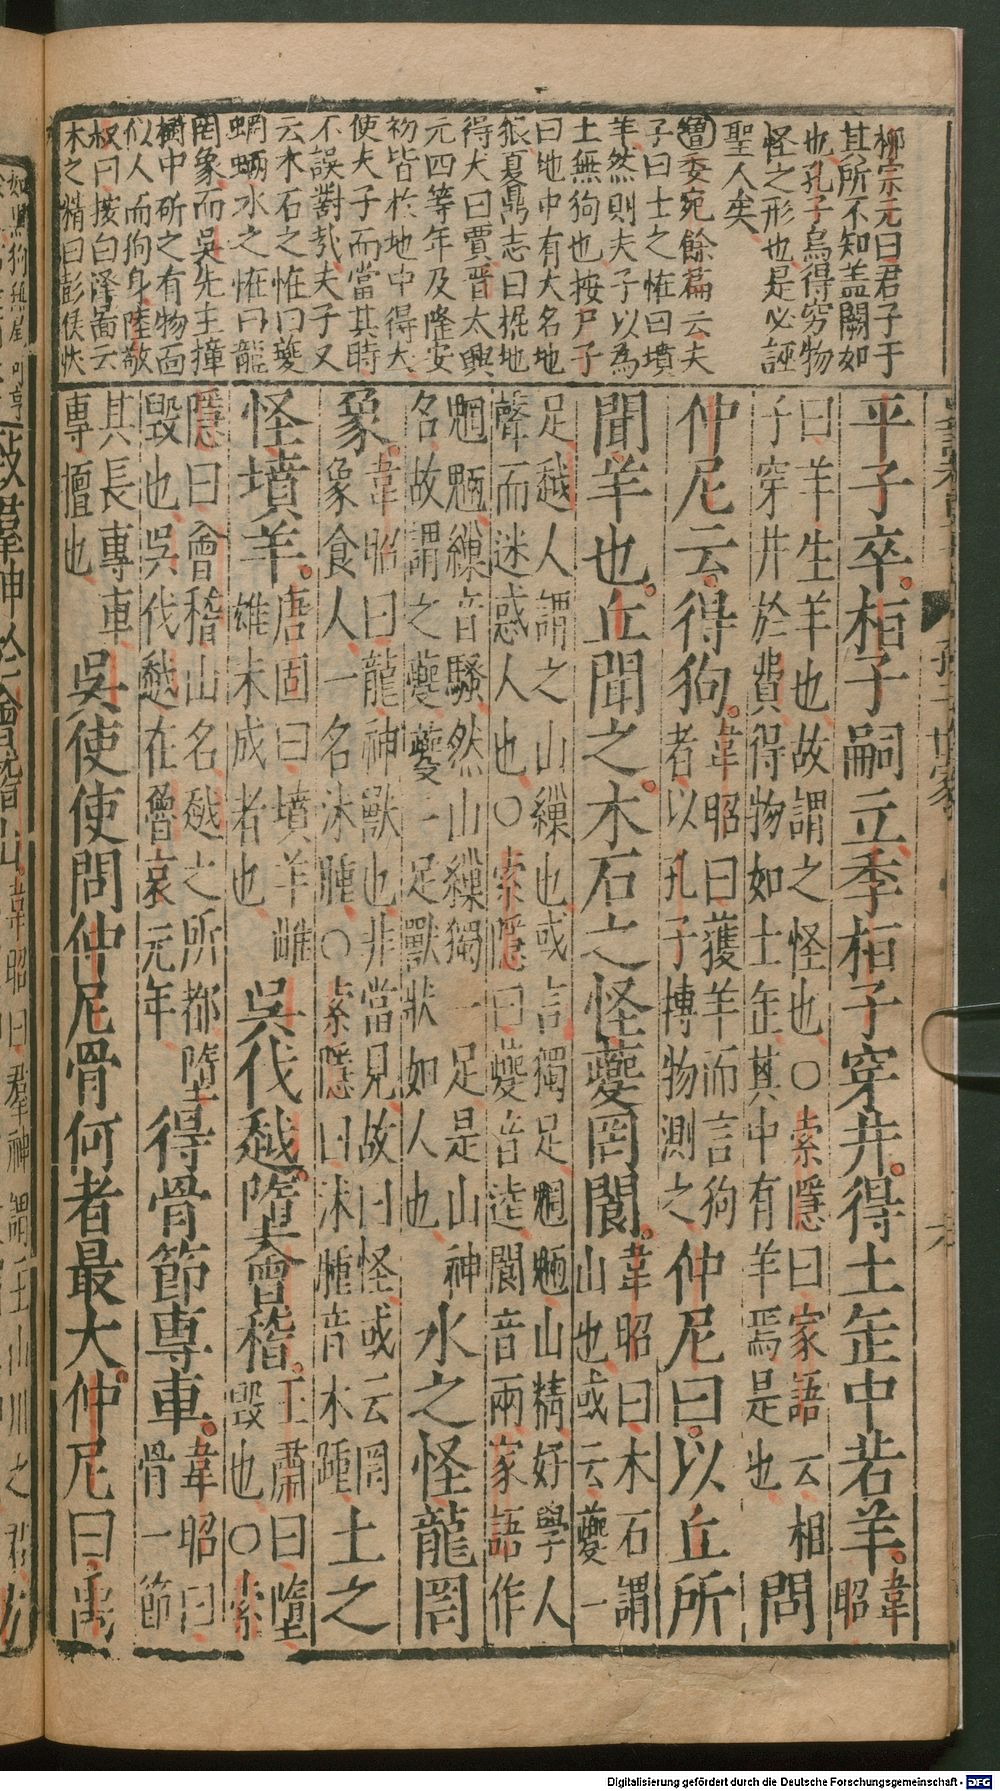 柳宗元曰君子于
其所不知盖闕如
也孔子烏得窮物
怪之形也是必誣
聖人矣
委宛餘篇云夫
子曰土之怪曰墳
羊然則夫子以為
土無狗也按尸子
曰地中有犬名地
狼夏鼎志曰掘地
得犬曰賈晉太興
元四等年及隆安
初皆於地中得犬
使夫子而當其時
不誤對哉夫子又
云木石之怪曰夔
蝄蜽水之怪曰龍
罔象而吳先主撞
樹中斫之有物面
似人而狗身陸敬
叔曰按白澤圖云
木之精曰彭侯状
平子卒。桓子嗣立季桓子穿井。得土缶中若羊。韋昭
曰羊生羊也故謂之怪也○索隱曰家語云相
子穿井於費得物如土缶其中有羊焉是也
問
仲尼云得狗。韋昭曰獲羊而言狗
者以孔子博物測之
仲尼曰。以丘所
聞羊也。丘聞之。木石之怪夔罔閬。韋昭曰木石謂
山也或云夔一
足越人謂之山繅也或言獨足魍魎山精好學人
聲而迷惑人也○索隱曰夔音逵閬音兩家語作
魍魎繅音騷然山繅獨一足是山神
名故謂之夔夔一足獸狀如人也
水之怪龍罔
象。韋昭曰龍神獸也非當見故曰怪或云罔
象食人一名沐腫○索隱曰沐腫音木踵
土之
怪墳羊。唐固曰墳羊雌
雄未成者也
吳伐越。墮會稽。王肅曰墮
毀也○索
隱曰會稽山名越之所都墮
毀也吳伐越在魯哀元年
得骨節專車。韋昭曰
骨一節
其長專車
專擅也
吳使使問仲尼骨何者最大。仲尼曰禹
致群神於會稽山。韋昭曰群神謂主山川之君
Digitalisierung gefördert durch die Deutsche Forschungsgemeinschaft - DFG